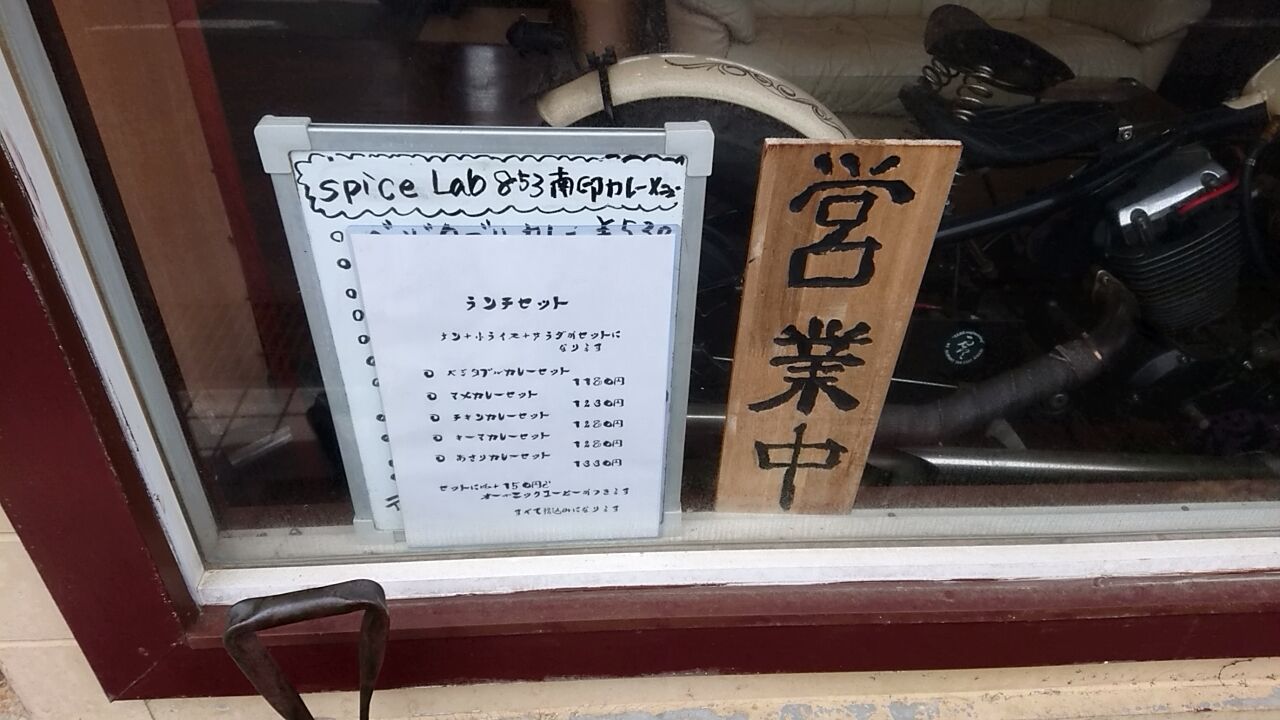 spice Lab 853 南印カレーメニュー
カレー ¥530
ランチセット
ナン+小ライス+サラダのセットに
なります
○ ベジタブルカレーセット
1180円
○ マメカレーセット
1230円
○ チキンカレーセット
1280円
○ キーマカレーセット
1280円
○ あさりカレーセット
1330円
セットには+150円で
オーガニックコーヒーがつきます
すべて税込みになります
営業中